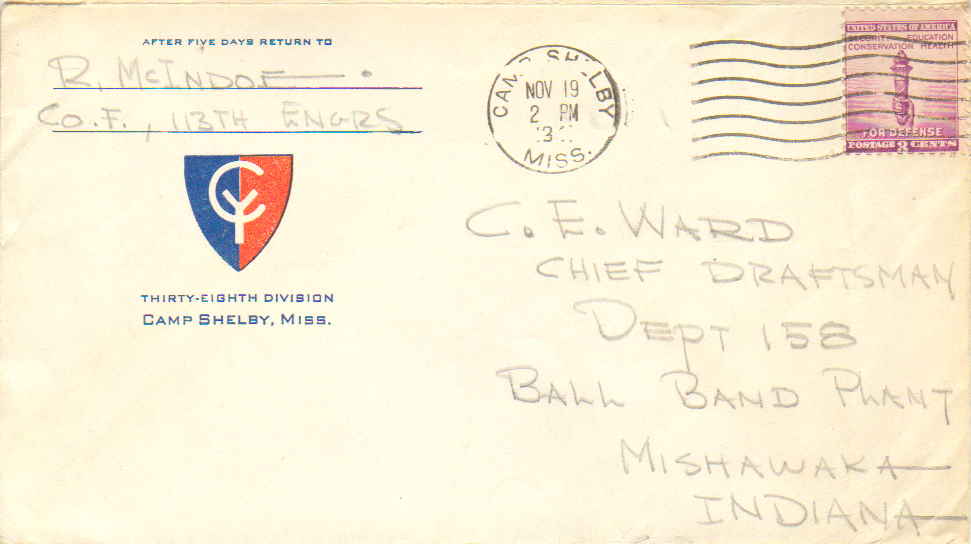 AFTER FIVE DAYS RETURN TO
R. McINDOE
CO. F., 113TH ENGRS
CY
THIRTY-EIGHTH DIVISION
CAMP SHELBY, MISS.
CAMP SHELBY
NOV 19
2 PM
MISS.
UNITED STATES OF AMERICA
SECURITY EDUCATION
CONSERVATION HEALTH
FOR DEFENSE
POSTAGE 3 CENTS
C. E. WARD
CHIEF DRAFTSMAN
DEPT 158
BALL BAND PLANT
MISHAWAKA
INDIANA